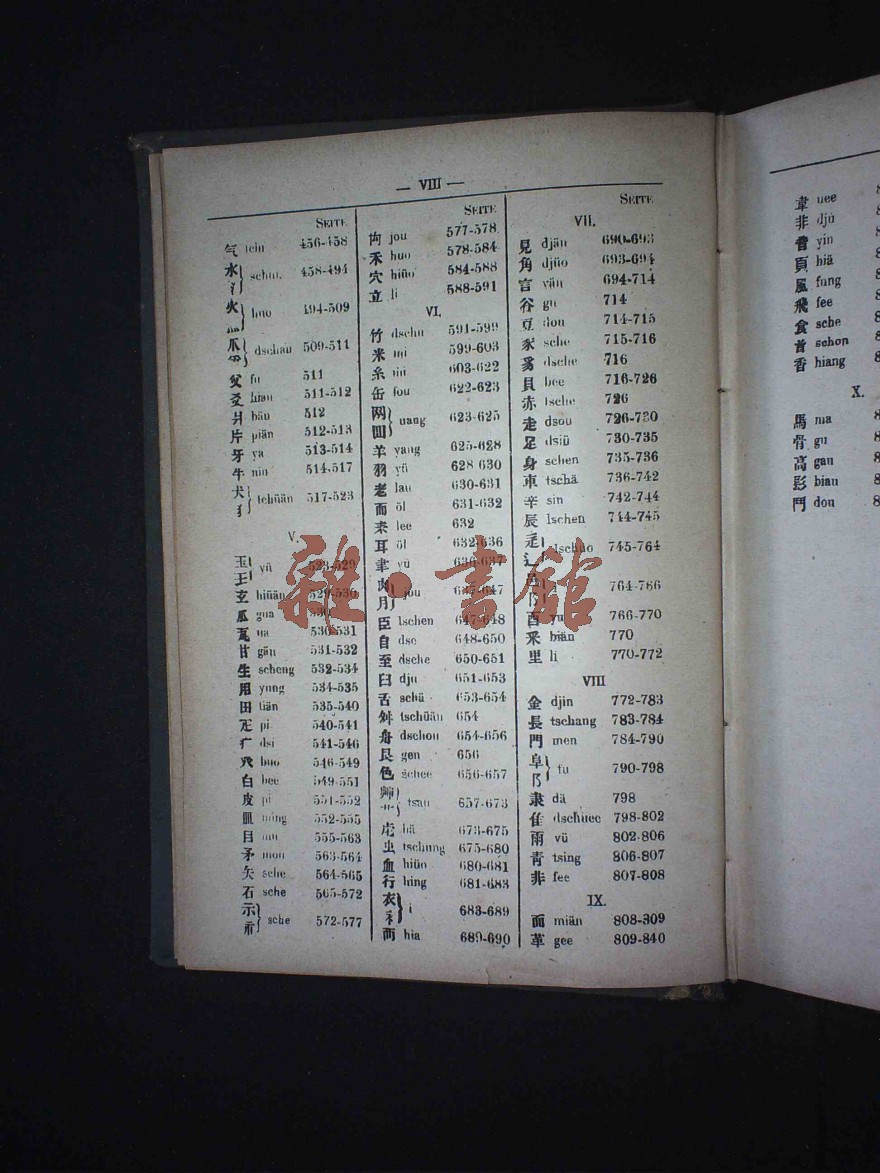 — VIII —
SEITE
气 456-458
水 氵 458-494
火 灬 huo 494-509
爪 爫 dschau 509-511
父 fu 511
爻 511-512
爿 bän 512
片 piän 512-513
牙 ya 513-514
牛 514,517
犬 犭 tchüän 517-523
V.
玉 王 yü 523-529
玄 hiüän 529-530
瓜 gua 530
瓦 ua 530-531
甘 gän 531-532
生 scheng 532-534
用 yung 534-535
田 tiän 535-540
疋 pi 540-541
疒 dsi 541-546
癶 buo 546-549
白 bee 549-551
皮 pi 551-552
皿 ming 552-555
目 mu 555-563
矛 mou 563-564
矢 sche 564-565
石 sche 565-572
示 礻 sche 572-577
SEITE
禸 jou 577-578
禾 huo 578-584
穴 hiüo 584-588
立 li 588-591
VI.
竹 dschu 591-599
米 mi 599-603
糸 603-622
缶 fou 622-623
网 uang 623-625
羊 yang 625-628
羽 yü 628 630
老 lau 630-631
而 öl 631-632
耒 lee 632
耳 öl 632-636
聿 yü 636-637
肉 月 jou 637-647
臣 tschen 647-648
自 dse 648-650
至 dsche 650-651
臼 djiu 651-653
舌 schä 653-654
舛 tschüän 654
舟 dschou 654-656
艮 gen 656
色 schee 656-657
艸 艹 tsau 657-673
虍 hä 673-675
虫 tschung 675-680
血 hiüo 680-681
行 hing 681-683
衣 衤 i 683-689
襾 hia 689-690
SEITE
VII.
見 djän 690-693
角 djüo 693-694
言 yän 694-714
谷 gu 714
豆 dou 714-715
豕 sche 715-716
豸 dsche 716
貝 bee 716-726
赤 tsche 726
走 dsou 726-730
足 dsiü 730-735
身 schen 735-736
車 tschä 736-742
辛 sin 742-744
辰 tschen 744-745
辵 辶 dschuo 745-764
邑 阝 764-766
酉 yu 766-770
釆 biän 770
里 li 770-772
VIII
金 djin 772-783
長 tschang 783-784
門 men 784-790
阜 阝 fu 790-798
隶 dä 798
隹 dschuee 798-802
雨 yü 802-806
青 tsing 806-807
非 fee 807-808
IX.
面 miän 808-809
革 gee 809-840
韋 uee 8
韭 djü 8
音 yin 8
頁 hiä 8
風 fung 8
飛 fee 8
食 sche 8
首 schon 8
香 hiang 8
X.
馬 ma 8
骨 gu 8
高 gau 8
髟 biau 8
鬥 dou 8
雜·書館